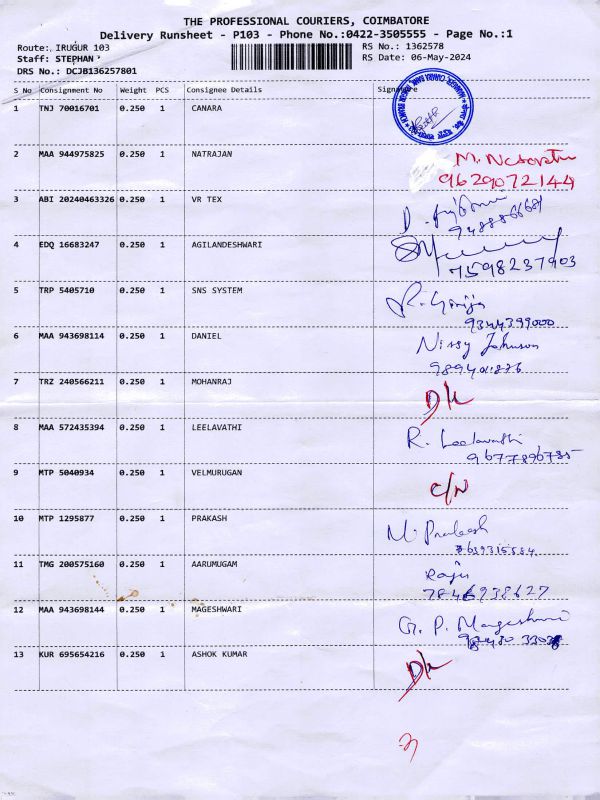 THE PROFESSIONAL COURIERS, COIMBATORE
Delivery Runsheet - P103 - Phone No.:0422-3505555 - Page No.:1
Route: IRUGUR 103
RS No.: 1362578
Staff: STEPHAN
RS Date: 06-May-2024
DRS No.: DCJB136257801
S No Consignment No Weight PCS Consignee Details Signature
1 TNJ 70016701 0.250 1 CANARA
2 MAA 944975825 0.250 1 NATRAJAN
9629072144
3 ABI 20240463326 0.250 1 VR TEX
4 EDQ 16683247 0.250 1 AGILANDESHWARI
7598237903
5 TRP 5405710 0.250 1 SNS SYSTEM
R. Girija
9344399000
6 MAA 943698114 0.250 1 DANIEL
Nissy Johnson
7 TRZ 240566211 0.250 1 MOHANRAJ
D/L
8 MAA 572435394 0.250 1 LEELAVATHI
R. Leelavathi
9677896735
9 MTP 5040934 0.250 1 VELMURUGAN
C/N
10 MTP 1295877 0.250 1 PRAKASH
M. Prakash
11 TMG 200575160 0.250 1 AARUMUGAM
Raju
12 MAA 943698144 0.250 1 MAGESHWARI
G. P. Mageshwari
13 KUR 695654216 0.250 1 ASHOK KUMAR
D/L